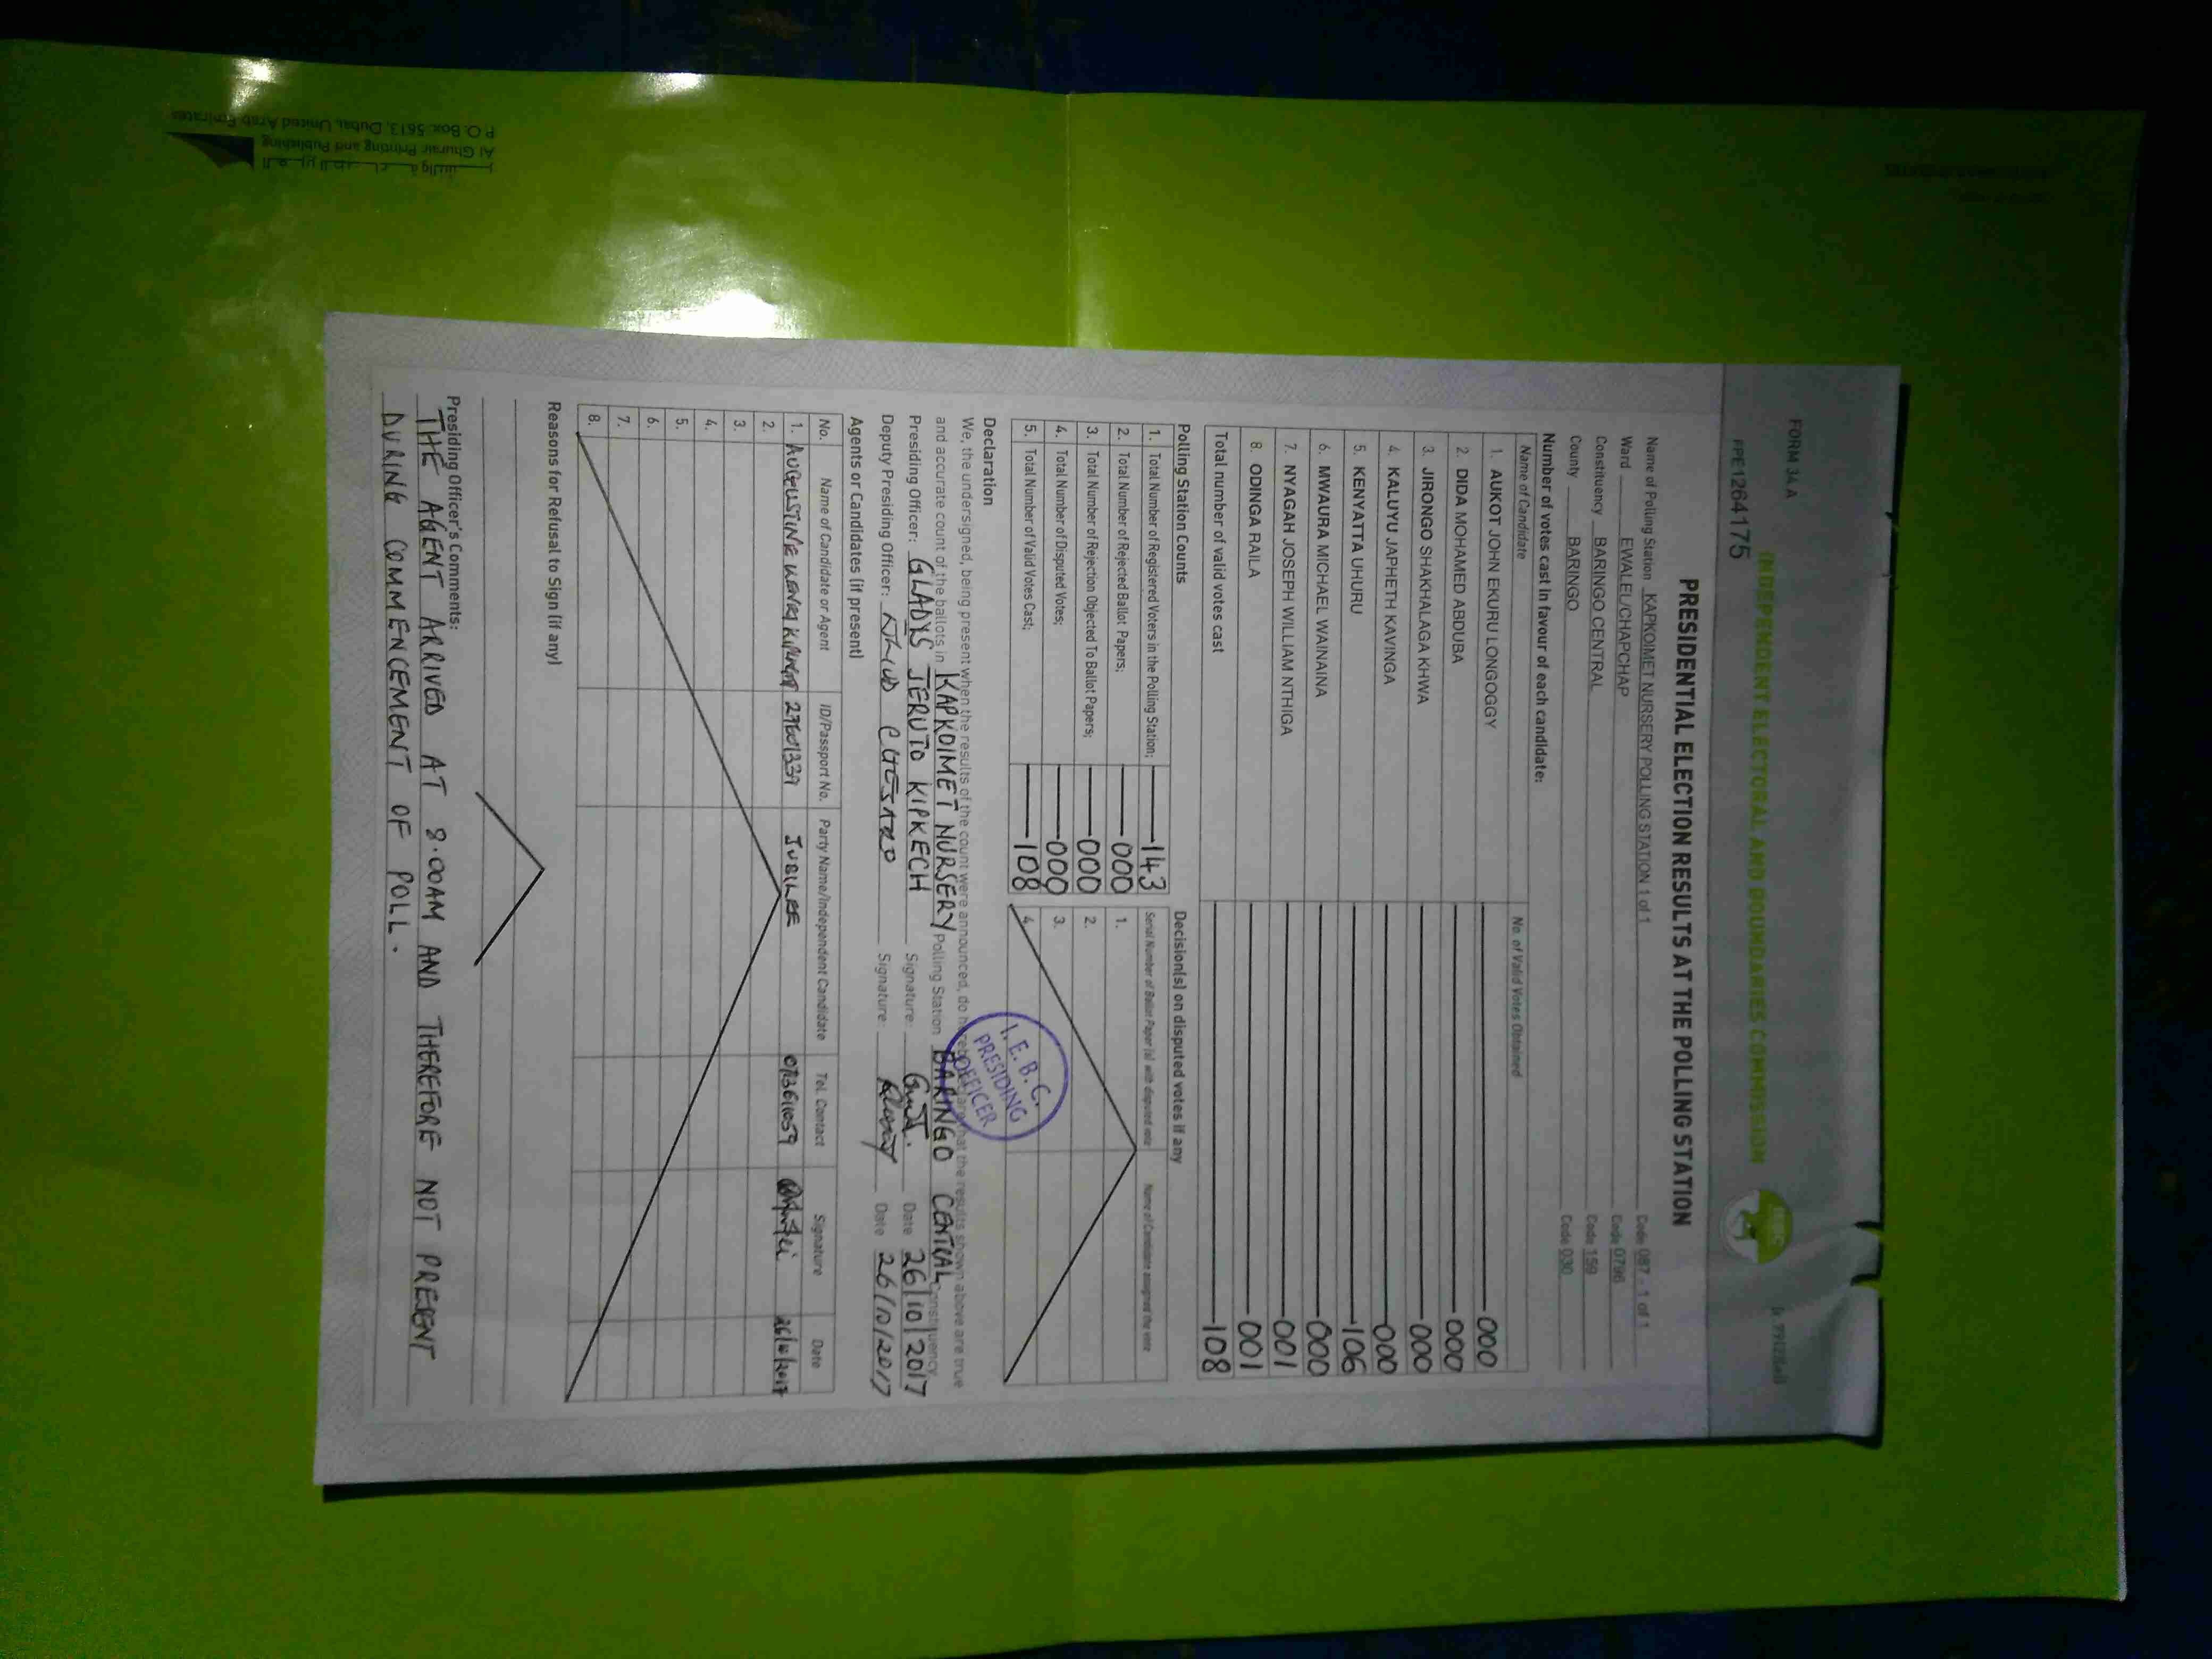 FORM 34 A
INDEPENDENT ELECTORAL AND BOUNDARIES COMMISSION
PPE1264175
PRESIDENTIAL ELECTION RESULTS AT THE POLLING STATION
Name of Polling Station KAPKOIMET NURSERY POLLING STATION 1 of 1 Code 087 - 1 of 1
Ward EWALEL/CHAPCHAP Code 0796
Constituency BARINGO CENTRAL Code 159
County BARINGO Code 030
Number of votes cast in favour of each candidate:
Name of Candidate No. of Valid Votes Obtained
1. AUKOT JOHN EKURU LONGOGGY 000
2. DIDA MOHAMED ABDUBA 000
3. JIRONGO SHAKHALAGA KHWA 000
4. KALUYU JAPHETH KAVINGA 000
5. KENYATTA UHURU 106
6. MWAURA MICHAEL WAINAINA 000
7. NYAGAH JOSEPH WILLIAM NTHIGA 001
8. ODINGA RAILA 001
Total number of valid votes cast 108
Polling Station Counts
1. Total Number of Registered Voters in the Polling Station; 143
2. Total Number of Rejected Ballot Papers; 000
3. Total Number of Rejection Objected To Ballot Papers; 000
4. Total Number of Disputed Votes; 000
5. Total Number of Valid Votes Cast; 108
Decision(s) on disputed votes if any
Serial Number of Ballot Paper (s) with disputed vote Name of Candidate assigned the vote
1.
2.
3.
4.
Declaration
We, the undersigned, being present when the results of the count were announced, do hereby declare that the results shown above are true
and accurate count of the ballots in KAPKOIMET NURSERY Polling Station BARINGO CENTRAL Constituency
I. E. B. C.
PRESIDING
OFFICER
Presiding Officer: GLADYS JERUTO KIPKECH Signature: Date 26/10/2017
Deputy Presiding Officer: Signature: Date 26/10/2017
Agents or Candidates (if present)
No. Name of Candidate or Agent ID/Passport No. Party Name/Independent Candidate Tel. Contact Signature Date
1. AUGUSTINE JUBILEE 26/10/2017
2.
3.
4.
5.
6.
7.
8.
Reasons for Refusal to Sign (if any)
Presiding Officer's Comments:
THE AGENT ARRIVED AT 8.00AM AND THEREFORE NOT PRESENT
DURING COMMENCEMENT OF POLL.
Al Ghurair Printing and Publishing
P.O. Box: 5613, Dubai, United Arab Emirates